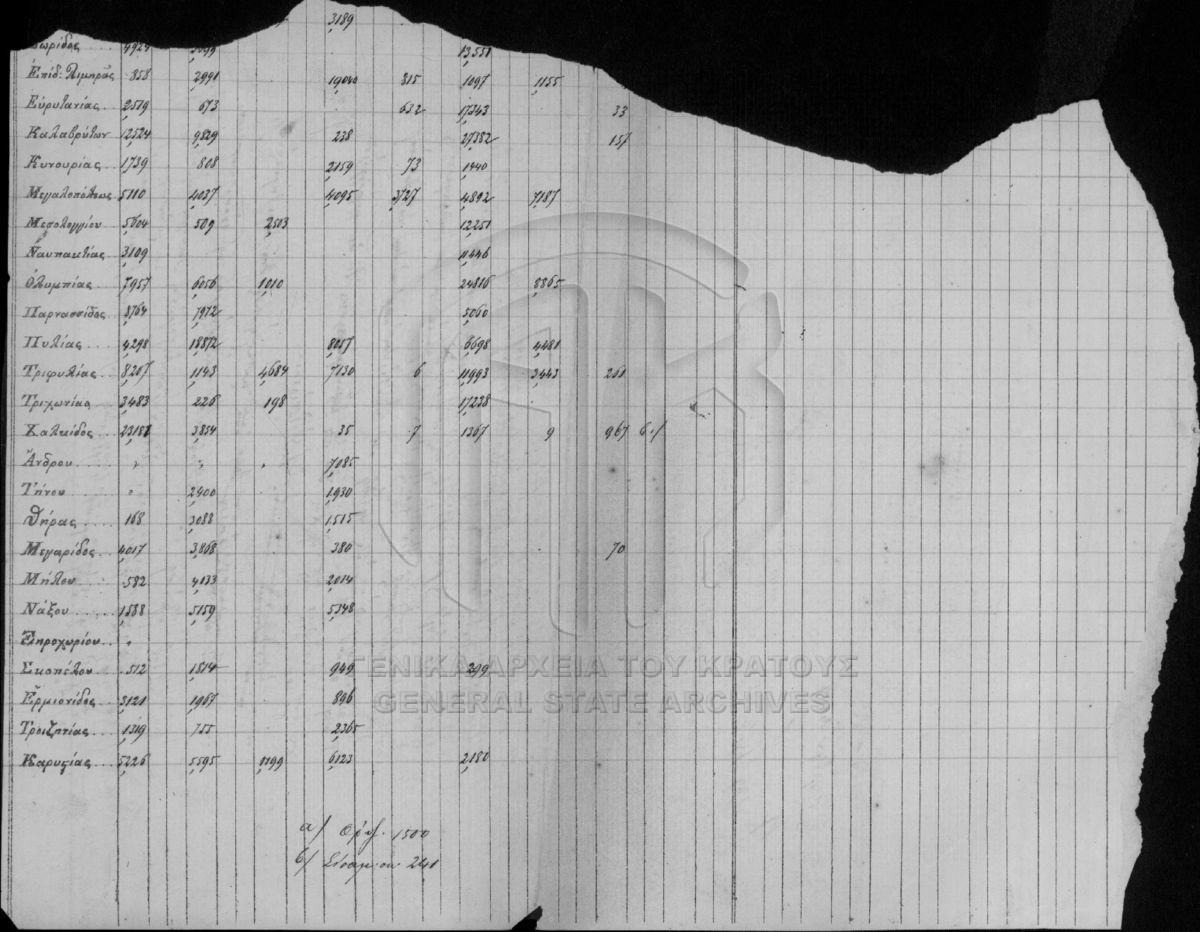 3189
Δωρίδος 4924 13551
Ἐπιδ: Λιμηρᾶς 858 2991 19040 315 1097 1155
Εὐρυτανίας 2519 673 632 17343 33
Καλαβρύτων 12524 9829 238 27382 157
Κυνουρίας 1739 808 2159 73 1440
Μεγαλοπόλεως 5110 4037 4095 3727 4892 7187
Μεσολογγίου 5604 509 2503 12251
Ναυπακτίας 3109 11446
Ὀλυμπίας 7957 6056 1010 24816 8865
Παρνασσίδος 8764 7972 5060
Πυλίας 4298 18872 8017 6698 4481
Τριφυλίας 8207 1143 4684 7130 6 11993 3443 201
Τριχωνίας 3483 226 198 17228
Χαλκίδος 23158 3854 35 7 1367 9 967 β/
Ἄνδρου 7085
Τήνου 2400 1930
Θήρας 168 3088 1515
Μεγαρίδος 4017 3868 380 70
Μήλου 582 4133 2014
Νάξου 1588 5159 5348
Ξηροχωρίου
Σκοπέλου 512 1514 949 299
Ἑρμιονίδος 3121 1967 896
Τροιζηνίας 1319 755 2365
Καρυστίας 5226 5595 1799 6123 2180
ΓΕΝΙΚΑ ΑΡΧΕΙΑ ΤΟΥ ΚΡΑΤΟΥΣ
GENERAL STATE ARCHIVES
α/ 1500
β/ 240